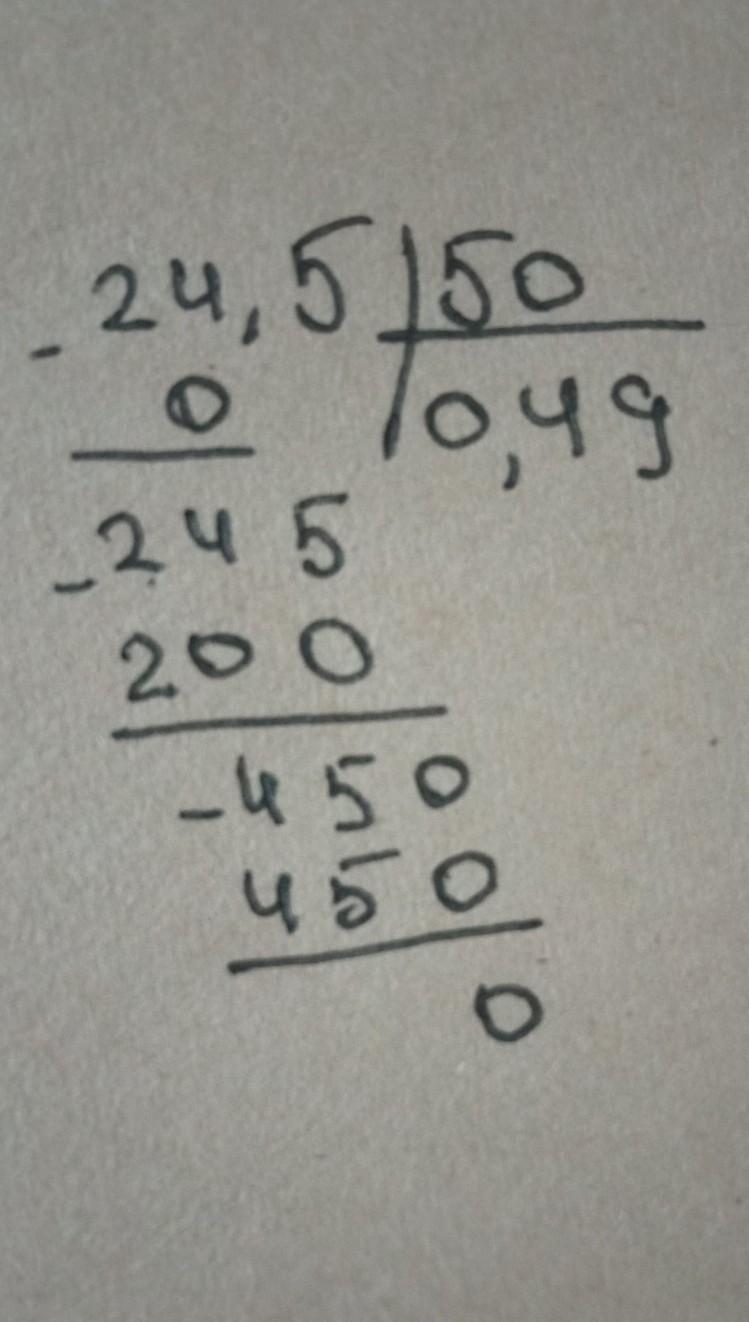 - 24,5 | 50
0 | 0,49
- 245
200
- 450
450
0